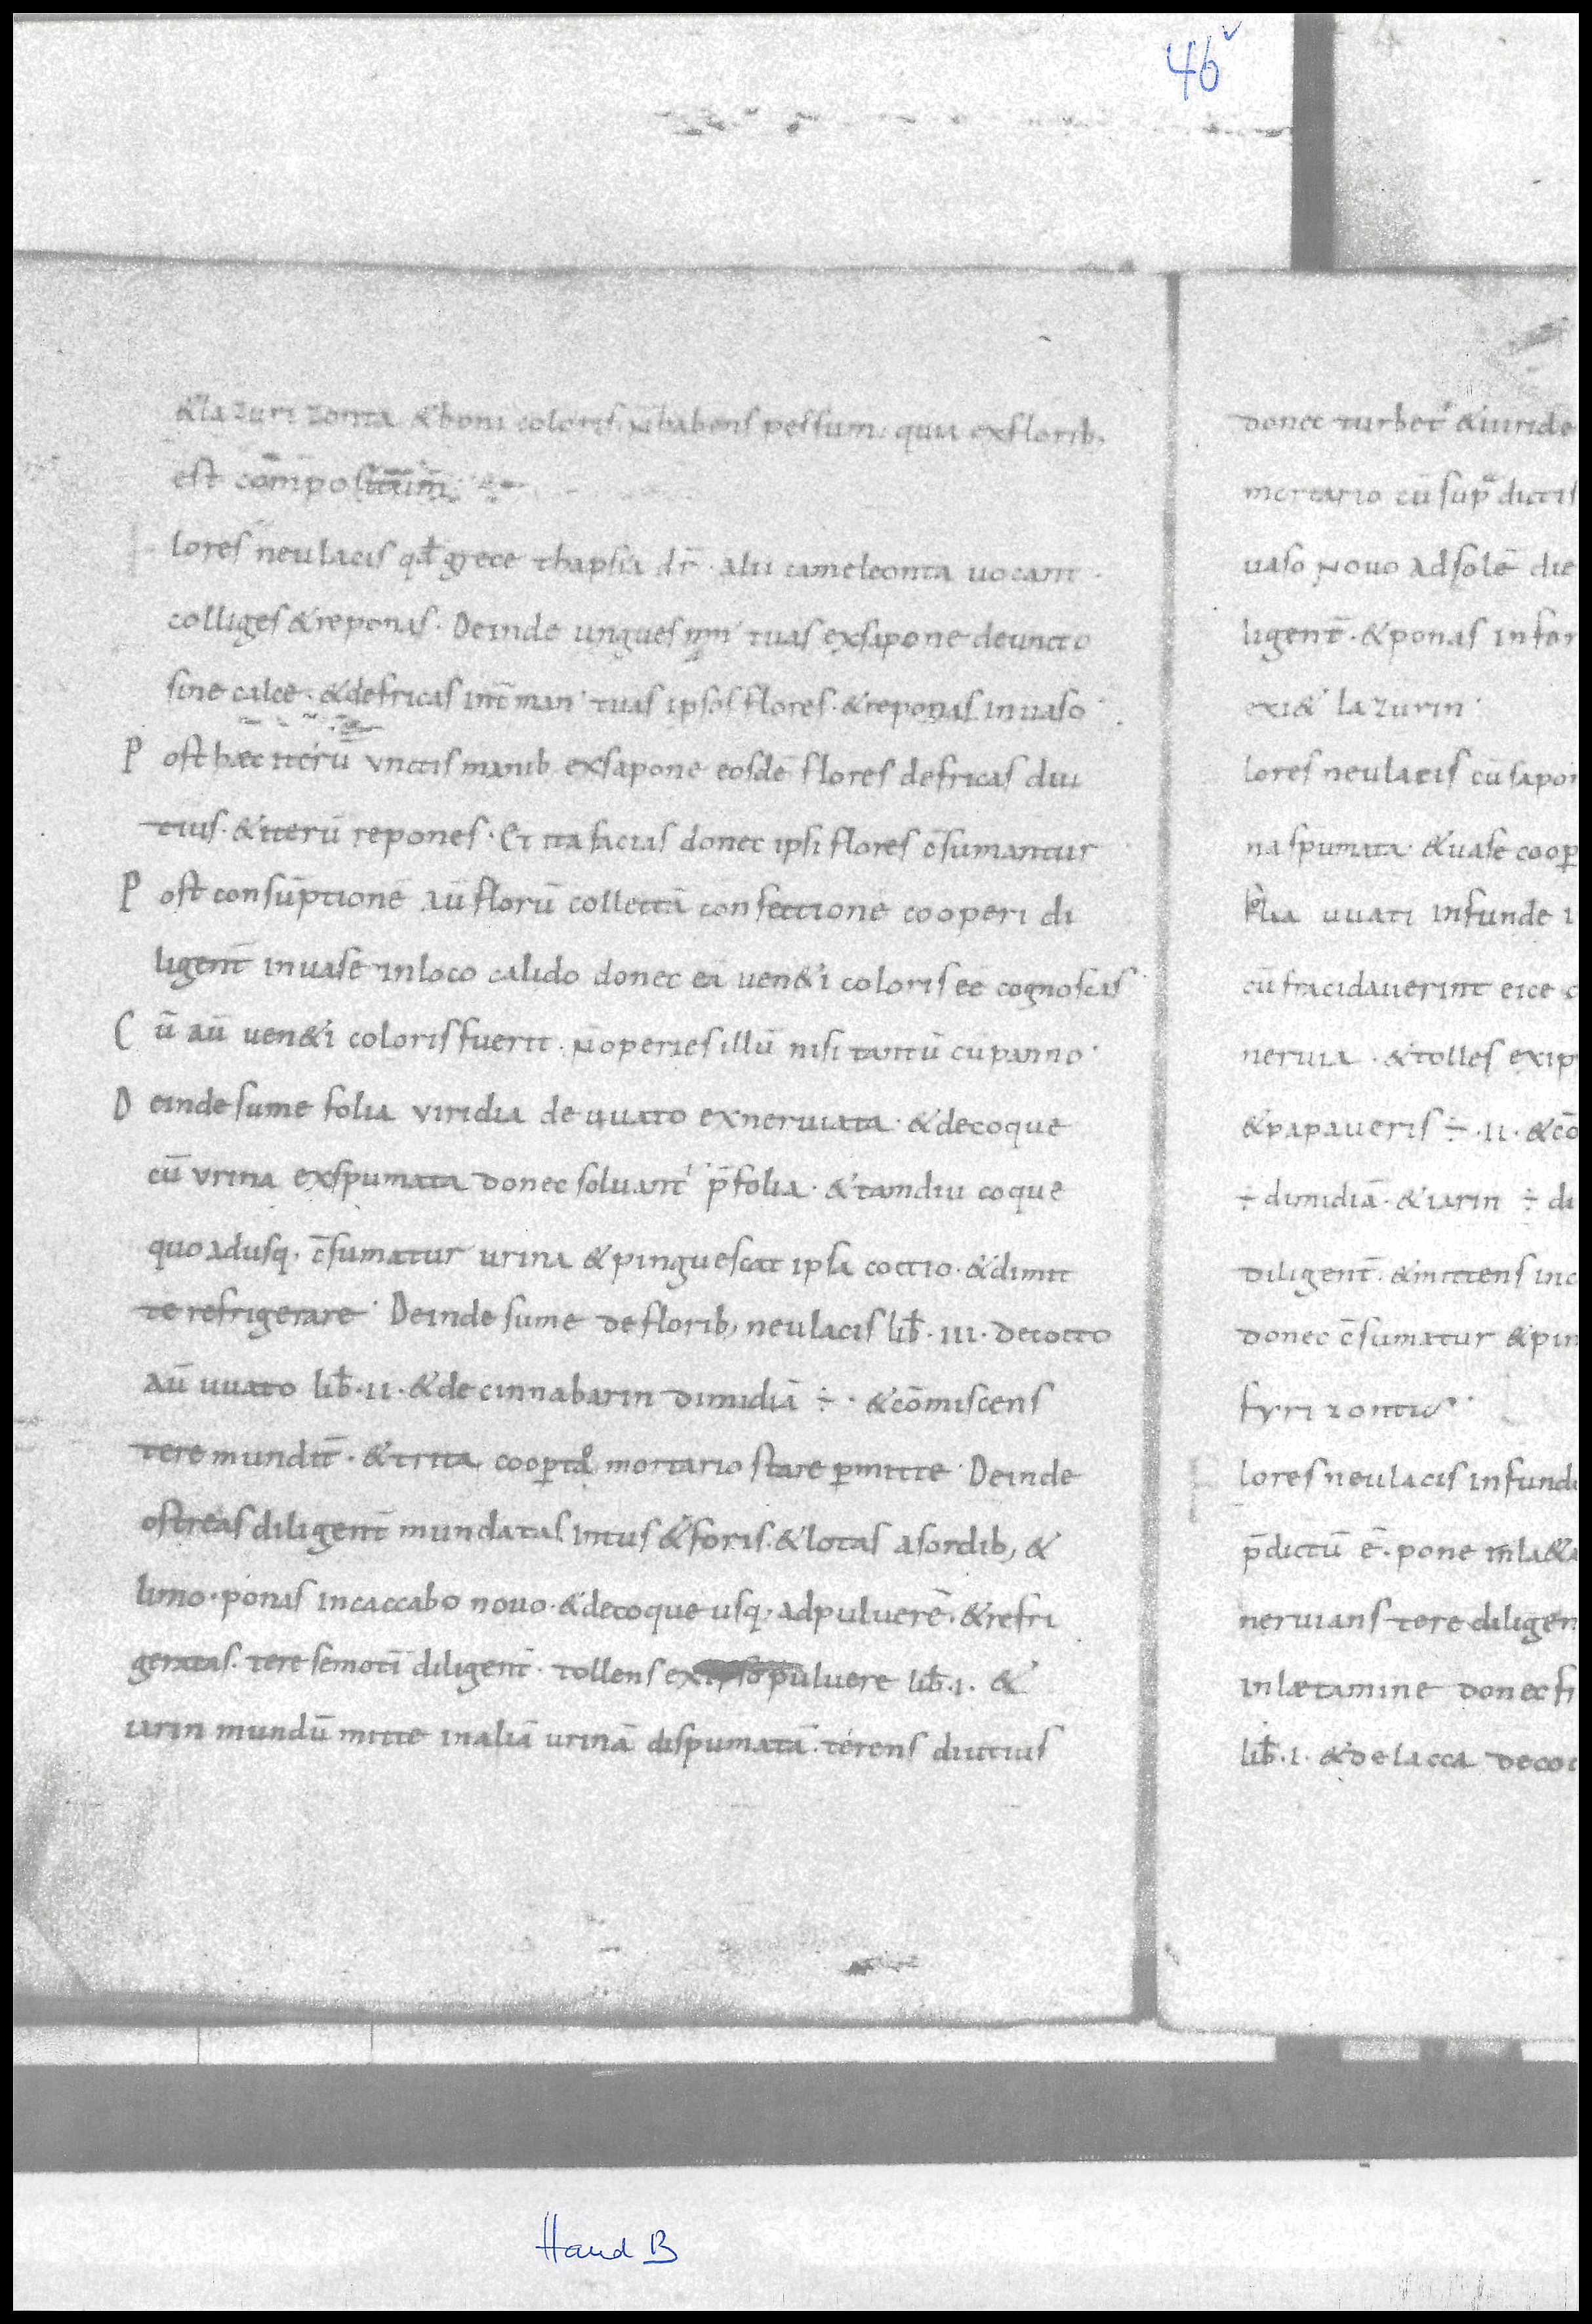 46v
& lazuri zonta & boni coloris. N habens pessum. quia ex florib;
est compositum
lores neulacis qđ grece thapsia dr̄. alii cameleonta uocant.
colliges & reponas. Deinde ungues man' tuas ex sapone deuncto
sine calce. & defricas int̄ man' tuas ipsos flores. & reponas in uaso
P ost hæc iterū vnctis manib; ex sapone eosdē flores defricas diu
tius. & iterū repones. Et ita facias donec ipsi flores c̄sumantur
P ost consūptionē aū florū collectā confectionē cooperi di
ligent̄ in uase in loco calido donec eā uen&i coloris eē cognoscas
C ū aū uen&i coloris fuerit. N operies illū nisi tantū cū panno.
D einde sume folia viridia de uuato exneruiata. & decoque
cū vrina exspumata donec soluant' p̄ folia. & tamdiu coque
quo adusq; c̄sumatur urina & pinguescat ipsa coctio. & dimit
te refrigerare. Deinde sume de florib; neulacis lib̄. III. decocto
aū uuato lib̄. II. & de cinnabarin dimidiā ÷. & cōmiscens
tere mundit̄. & trita cooꝑto mortario stare ꝑmitte. Deinde
ostreas diligent̄ mundatas intus & foris. & lotas a sordib; &
limo. ponas in caccabo nouo. & decoque usq; ad puluerē. & refri
geratas. tere semotī diligent̄. tollens ex ipso puluere lib̄. I. &
iarin mundū mitte in aliā urinā dispumatā. terens diutius
donec turbet' & uiride
mortario cū sup̄a dictis
uaso Nouo ad solē die
ligent̄. & ponas in for
exi& lazurin.
lores neulacis cū sapo
na spumata. & uase cooꝑ
folia uuati infunde i
cū fracidauerint eice c
neruia. & tolles ex ip
& papaueris ÷. II. & cō
÷ dimidiā. & iarin ÷ di
diligent̄. & mittens in c
donec c̄sumatur & pin
fyri zontic
F lores neulacis infund
p̄dictū ē. pone in la&a
neruians tere diligen
in lætamine donec fr
lib̄. I. & de lacca decoc
Hand B